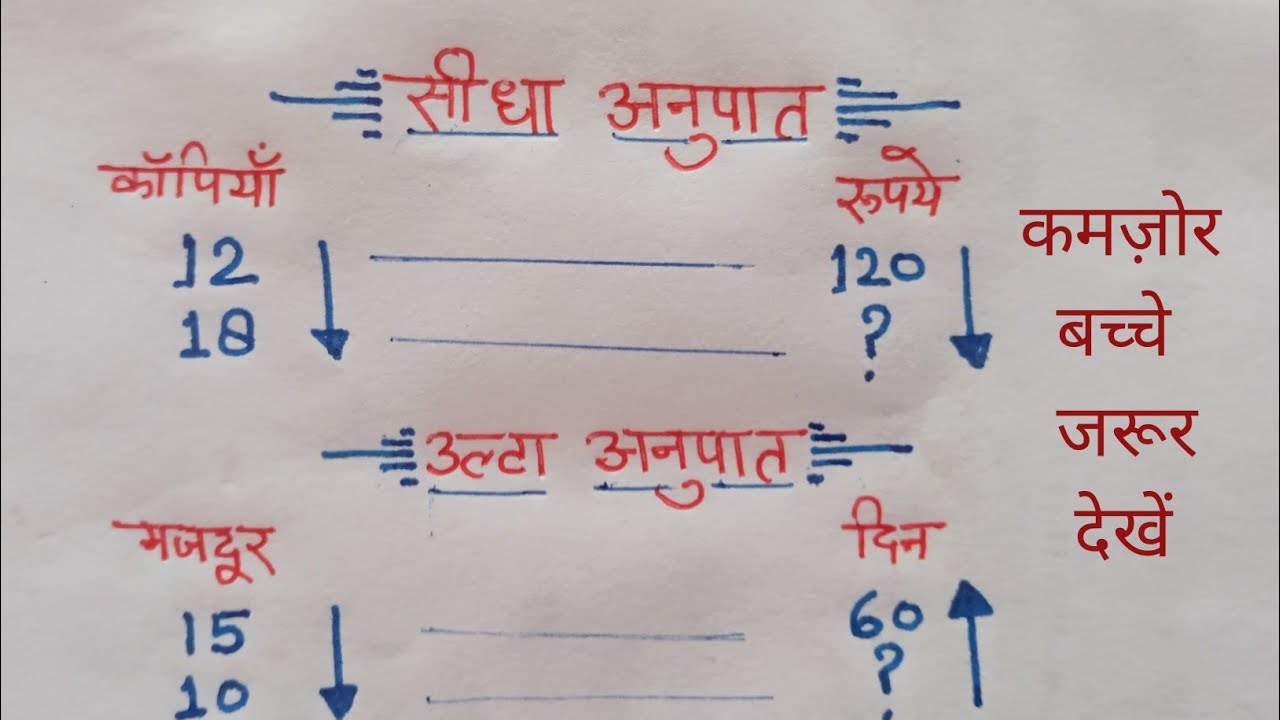 सीधा अनुपात
कॉपियाँ रुपये
12 120
18 ?
उल्टा अनुपात
मजदूर दिन
15 60
10 ?
कमज़ोर
बच्चे
जरूर
देखें